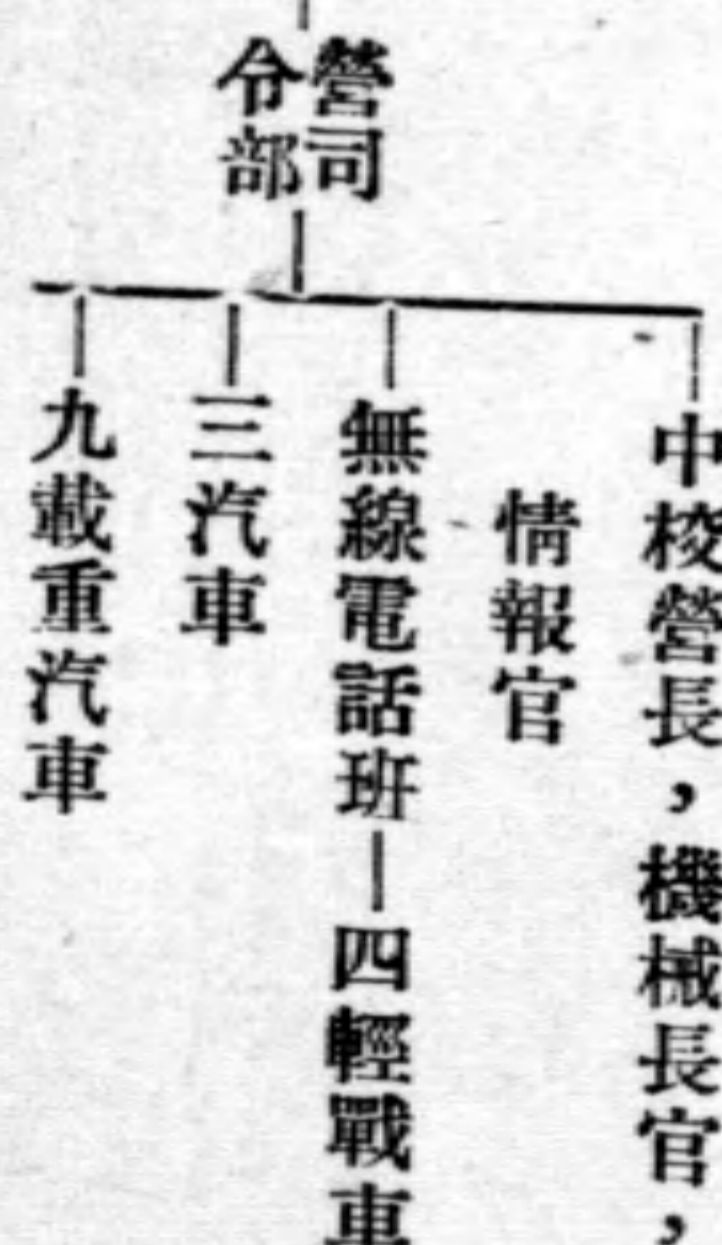 營司
令部
中校營長，機械長官，
情報官
無線電話班—四輕戰車
三汽車
九載重汽車